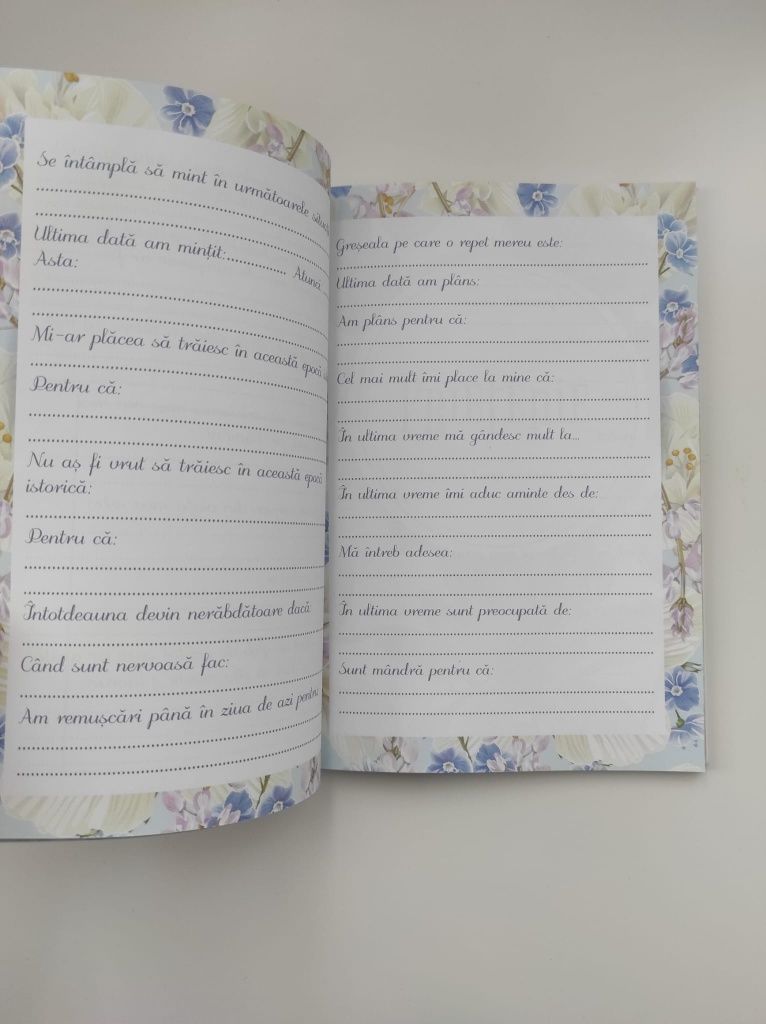 Se întâmplă să mint în următoarele
Ultima dată am mințit:............... Atunci
Asta:
Mi-ar plăcea să trăiesc în această epocă
Pentru că:
Nu aș fi vrut să trăiesc în această epocă
istorică:
Pentru că:
Întotdeauna devin nerăbdătoare dacă
Când sunt nervoasă fac:
Am remușcări până în ziua de azi pentru
Greșeala pe care o repet mereu este:
Ultima dată am plâns:
Am plâns pentru că:
Cel mai mult îmi place la mine că:
În ultima vreme mă gândesc mult la...
În ultima vreme îmi aduc aminte des de:
Mă întreb adesea:
În ultima vreme sunt preocupată de:
Sunt mândră pentru că: